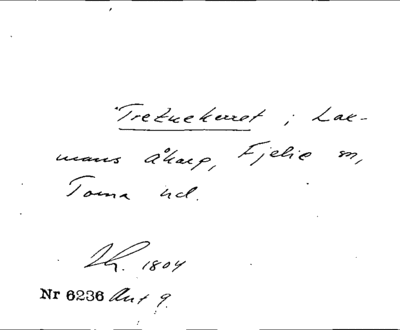 "Tretuekerret i Lac-
mans Åkarp, Fjelie sn,
Torna hd.
Th. 1804
Nr 6236 Ant 9.